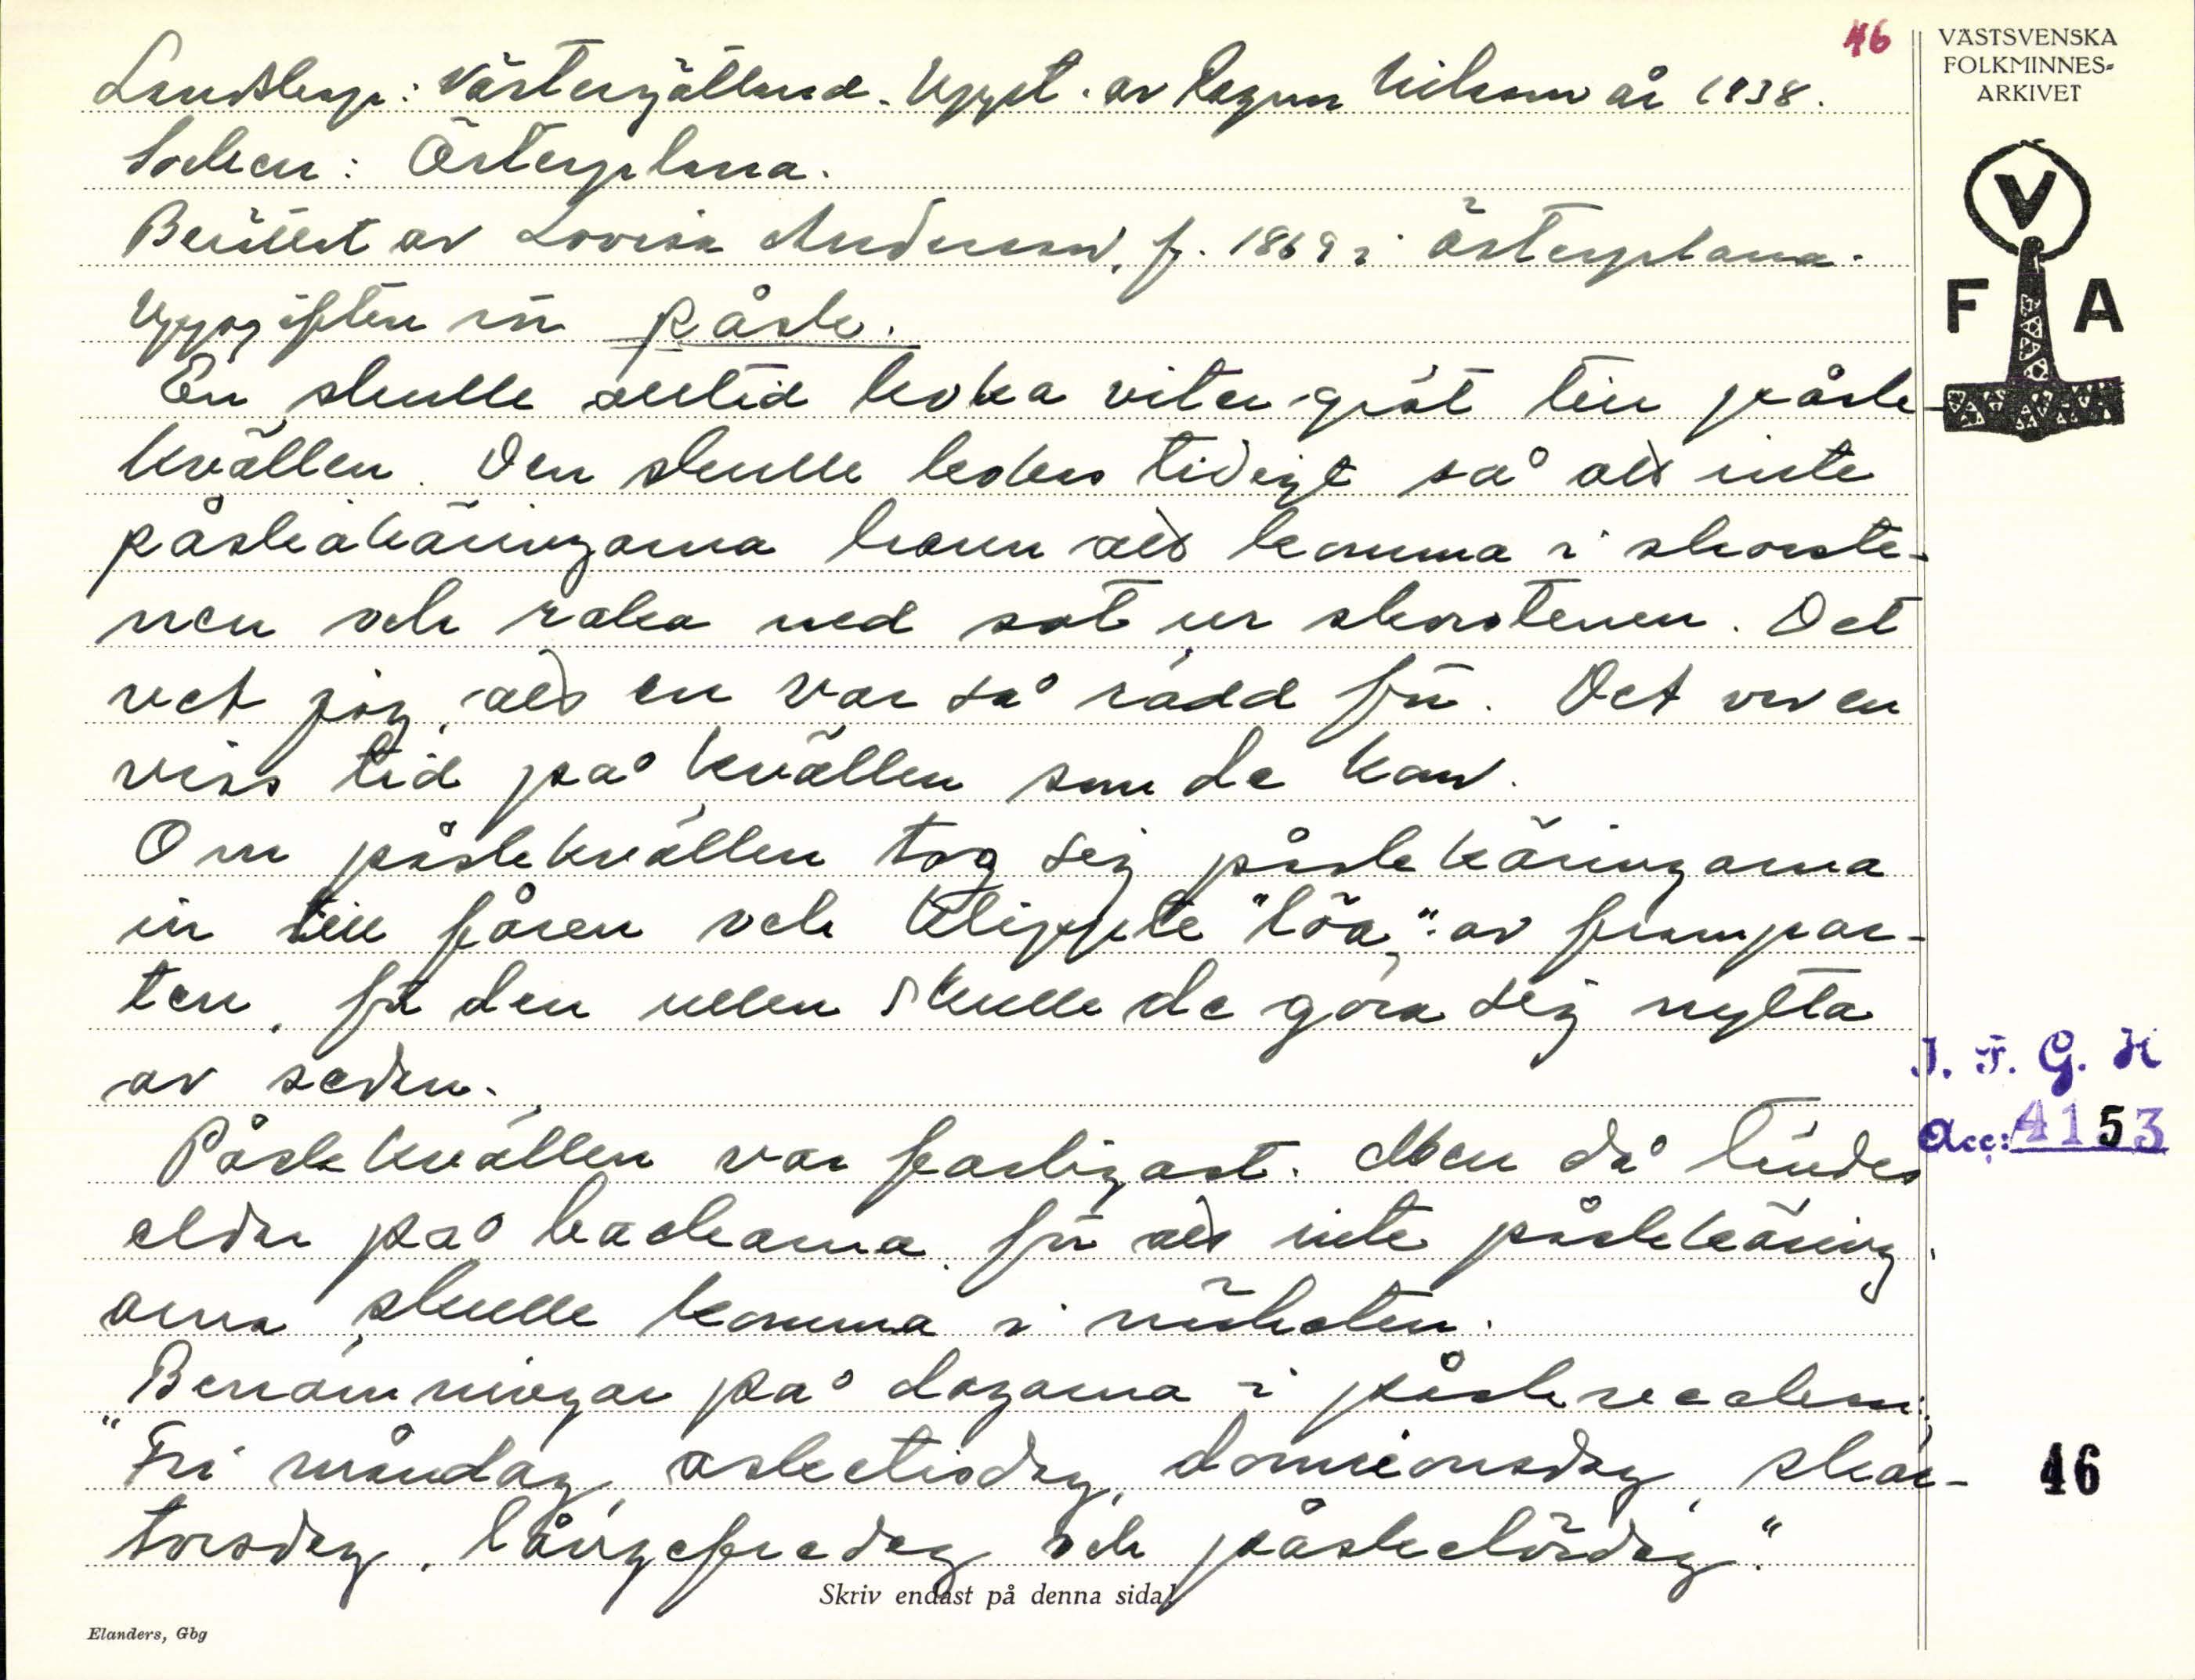 46
VÄSTSVENSKA
FOLKMINNES-
ARKIVET
V
F A
Landskap: Västergötland. Uppt. av Ragnar Nilsson år 1938.
Socken: Österplana.
Berättat av Lovisa Andersson, f. 1869 i Österplana.
Uppgiften rör påsk.
En skulle alltid koka vitergröt till påsk-
kvällen. Den skulle kokas tidigt så att inte
påskakäringarna hann att komma i skorste-
nen och raka ned sot ur skorstenen. Det
vet jag, att en var så rädd för. Det var en
viss tid på kvällen som de kom.
Om påskkvällen tog sig påskkäringarna
in till fåren och klippte "löa" av frampar-
ten, för den ullen skulle de göra sig nytta
av sedan.
Påskkvällen var farligast. Men då tändes
eldar på backarna för att inte påskkäring-
arna skulle komma i närheten.
Benämningar på dagarna i påskveckan:
"Fri måndag, asketisdag, domreonsdag, skär-
torsdag, långefredag och påskelördag."
Skriv endast på denna sida!
Elanders, Gbg
I. F. G. H
Acc: 4153
46